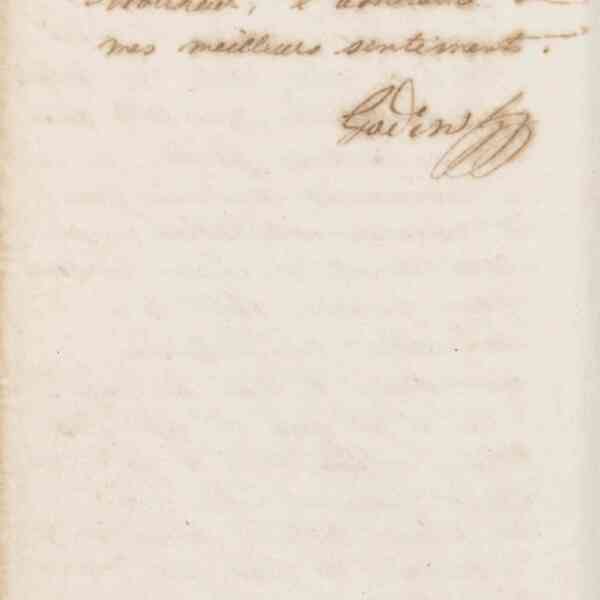 Monsieur, l'
mes meilleurs sentiments.
Godin